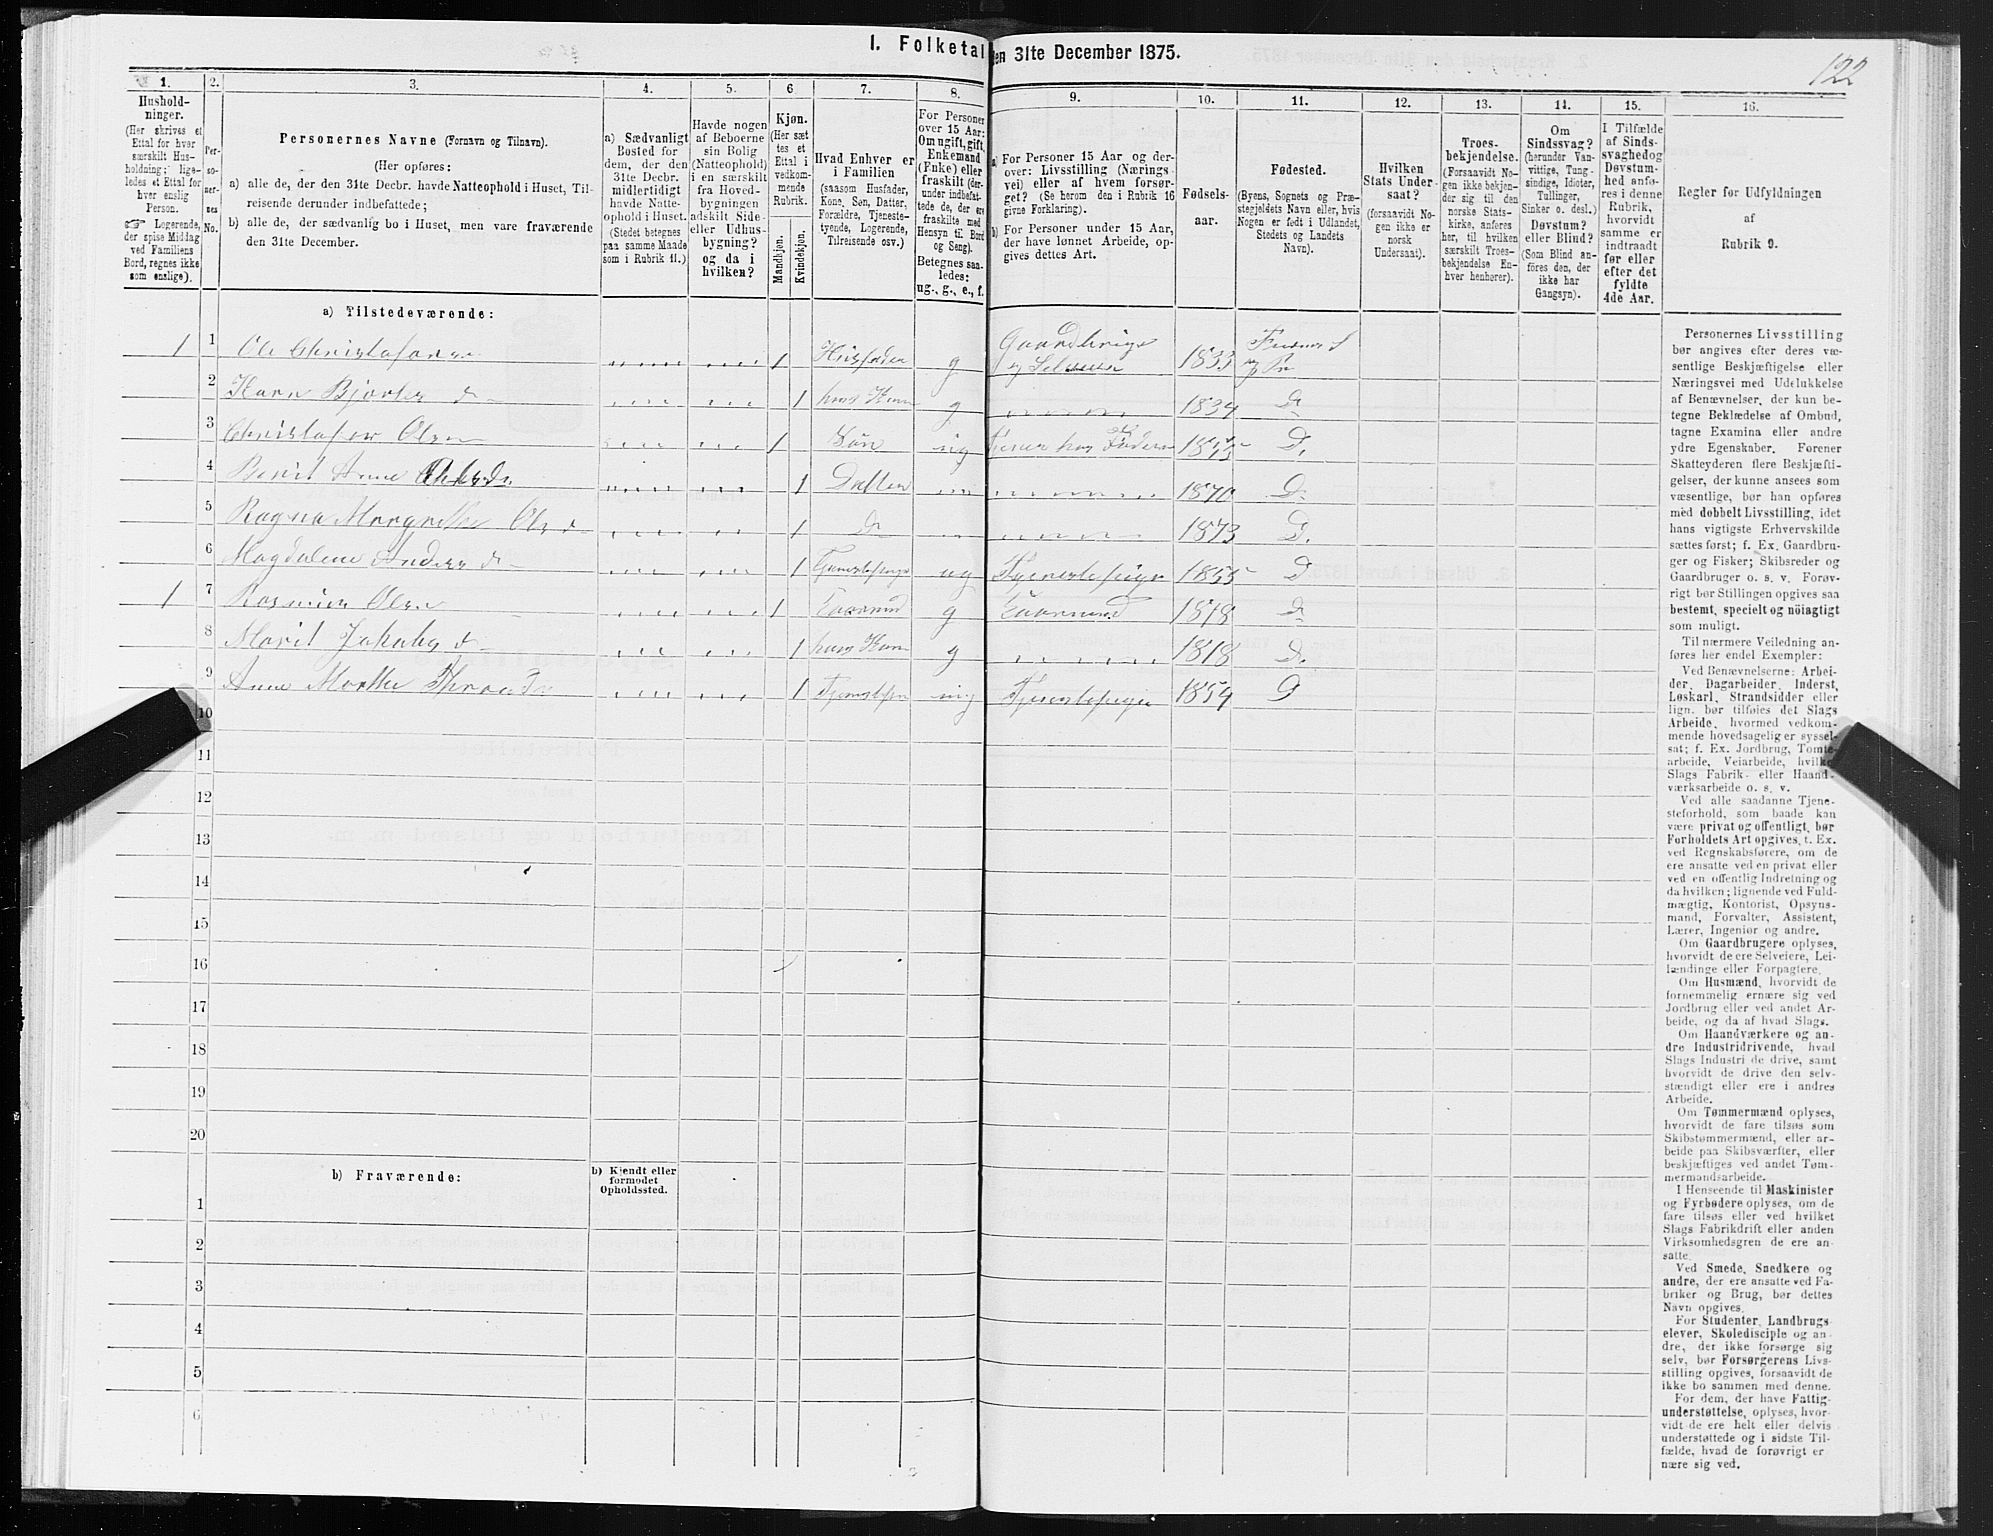 I. Folketal den 31te December 1875.
122
1.
Hushold-
ninger.
(Her skrives et
Ettal for hver
særskilt Hus-
holdning; lige-
ledes et Ettal for
hver enslig
Person.
☞ Logerende,
der spise Middag
ved Familiens
Bord, regnes ikke
som enslige).
2.
Per-
so-
ner-
nes
No.
3.
Personernes Navne (Fornavn og Tilnavn).
(Her opføres:
a) alle de, der den 31te Decbr. havde Natteophold i Huset, Til-
reisende derunder indbefattede;
b) alle de, der sædvanlig bo i Huset, men vare fraværende
den 31te December.
4.
a) Sædvanligt
Bosted for
dem, der den
31te Decbr.
midlertidigt
havde Natte-
ophold i Huset.
(Stedet betegnes
paa samme Maade
som i Rubrik 11.)
5.
Havde nogen
af Beboerne
sin Bolig
(Natteophold)
i en særskilt
fra Hoved-
bygningen
adskilt Side-
eller Udhus-
bygning?
og da i
hvilken?
6
Kjøn.
(Her sæt
tes et
Ettal i
vedkom-
mende
Rubrik.
Mandkjøn.
Kvindekjøn.
7.
Hvad Enhver er
i Familien
(saasom Husfader,
Kone, Søn, Datter,
Forældre, Tjeneste-
tyende, Logerende,
Tilreisende osv.)
8.
For Personer
over 15 Aar:
Om ugift, gift,
Enkemand
(Enke) eller
fraskilt (der-
under indbefat-
tede de, der ere
fraskilte med
Hensyn til Bord
og Seng).
Betegnes saa-
ledes:
ug., g., e., f.
9.
a) For Personer 15 Aar og der-
over: Livsstilling (Nærings-
vei) eller af hvem forsør-
get? (Se herom den i Rubrik 16
givne Forklaring).
b) For Personer under 15 Aar,
der have lønnet Arbeide, op-
gives dettes Art.
10.
Fødsels-
aar.
11.
Fødested.
(Byens, Sognets og Præ-
stegjeldets Navn eller, hvis
Nogen er født i Udlandet,
Stedets og Landets
Navn).
12.
Hvilken
Stats Under-
saat?
(forsaavidt No-
gen ikke er
norsk
Undersaat).
13.
Troes-
bekjendelse.
(Forsaavidt No-
gen ikke bekjen-
der sig til den
norske Stats-
kirke, anføres
her, til hvilken
særskilt Troes-
bekjendelse En-
hver henhører).
14.
Om
Sindssvag?
(herunder Van-
vittige, Tung-
sindige, Idioter,
Tullinger,
Sinker o. desl.)
Døvstum?
eller Blind?
(Som Blind an-
føres den, der
ikke har
Gangsyn).
15.
I Tilfælde
af Sinds-
svaghed og
Døvstum-
hed anfø-
res i denne
Rubrik,
hvorvidt
samme er
indtraadt
før eller
efter det
fyldte
4de Aar.
16.
Regler for Udfyldningen
af
Rubrik 9.
a) Tilstedeværende:
1 1 Ole Christofersen 1 Husfader g Gaardbruger og Selveier 1833
2 Karn d 1 hans Kone g 1834 D
3 Christofer Olsen 1 Søn ug D.
4 Berit Anne 1 Datter 1870 D.
5 Ragna Margrethe Olsd 1 D 1873 D.
6 Magdalene Andersd 1 ug Tjenestepige 1855 D
1 7 Rasmus Olsen 1 g D
8 Marit Jakobsd 1 hans Kone g 1818 D.
9 Anne Marthe 1 ug Tjenestepige 1854 D
10
11
12
13
14
15
16
17
18
19
20
b) Fraværende:
b) Kjendt eller
formodet
Opholdssted.
1
2
3
4
5
6
Personernes Livsstilling
bør angives efter deres væ-
sentlige Beskjæftigelse eller
Næringsvei med Udelukkelse
af Benævnelser, der kun be-
tegne Beklædelse af Ombud,
tagne Examina eller andre
ydre Egenskaber. Forener
Skatteyderen flere Beskjæfti-
gelser, der kunne ansees som
væsentlige, bør han opføres
med dobbelt Livsstilling, idet
hans vigtigste Erhvervskilde
sættes først; f. Ex. Gaardbru-
ger og Fisker; Skibsreder og
Gaardbruger o. s. v. Forøv-
rigt bør Stillingen opgives saa
bestemt, specielt og nöiagtigt
som muligt.
Til nærmere Veiledning an-
føres her endel Exempler:
Ved Benævnelserne: Arbei-
der, Dagarbeider, Inderst,
Løskarl, Strandsidder eller
lign. bør tilføies det Slags
Arbeide, hvormed vedkom-
mende hovedsagelig er syssel-
sat; f. Ex. Jordbrug, Tomte-
arbeide, Veiarbeide, hvilket
Slags Fabrik- eller Haand-
værksarbeide o. s. v.
Ved alle saadanne Tjene-
steforhold, som baade kan
være privat og offentligt, bør
Forholdets Art opgives, t. Ex.
ved Regnskabsførere, om de
ere ansatte ved en privat eller
ved en offentlig Indretning og
da hvilken; lignende ved Fuld-
mægtig, Kontorist, Opsyns-
mand, Forvalter, Assistent,
Lærer, Ingeniør og andre.
Om Gaardbrugere oplyses,
hvorvidt de ere Selveiere, Lei-
lændinge eller Forpagtere.
Om Husmænd, hvorvidt de
fornemmelig ernære sig ved
Jordbrug eller ved andet Ar-
beide, og da af hvad Slags.
Om Haandværkere og an-
dre Industridrivende, hvad
Slags Industri de drive, samt
hvorvidt de drive den selv-
stændigt eller ere i andres
Arbeide.
Om Tømmermænd oplyses,
hvorvidt de fare tilsøs som
Skibstømmermænd, eller ar-
beide paa Skibsværfter, eller
beskjæftiges ved andet Tøm-
mermandsarbeide.
I Henseende til Maskinister
og Fyrbødere oplyses, om de
fare tilsøs eller ved hvilket
Slags Fabrikdrift eller anden
Virksomhedsgren de ere an-
satte.
Ved Smede, Snedkere og
andre, der ere ansatte ved Fa-
briker og Brug, bør dettes
Navn opgives.
For Studenter, Landbrugs-
elever, Skoledisciple og an-
dre, der ikke forsørge sig
selv, bør Forsørgerens Livs-
stilling opgives, forsaavidt de
ikke bo sammen med denne.
For dem, der have Fattig-
understøttelse, oplyses, hvor-
vidt de ere helt eller delvis
understøttede og i sidste Til-
fælde, hvad de forøvrigt er
nære sig ved.